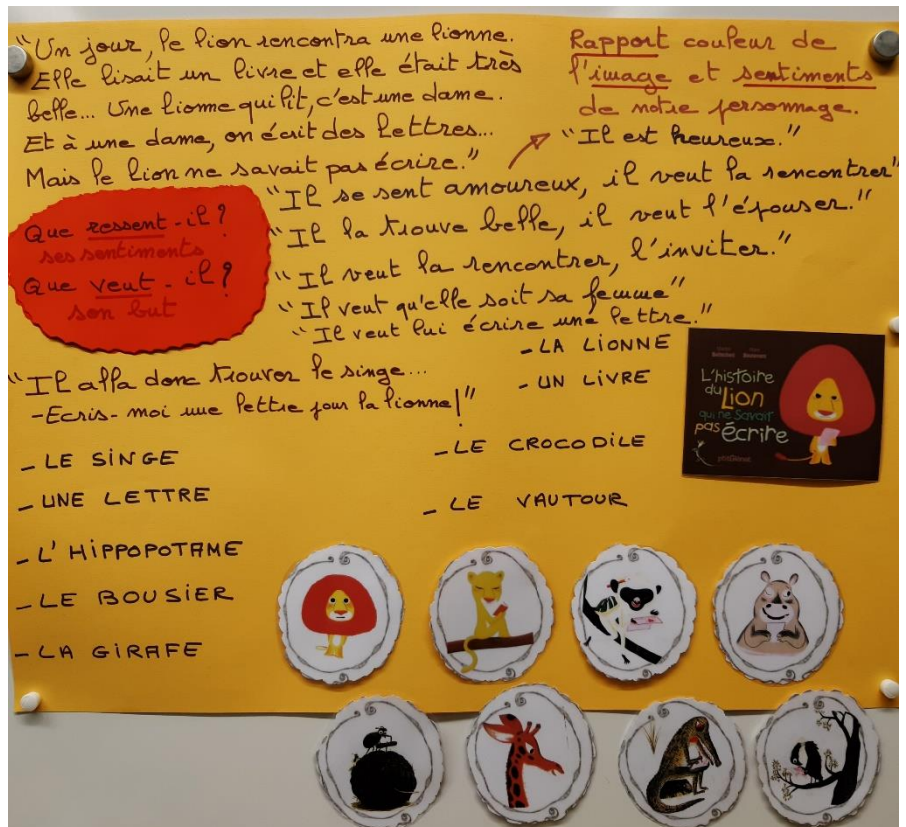 "Un jour, le lion rencontra une lionne.
Elle lisait un livre et elle était très
belle... Une lionne qui lit, c'est une dame.
Et à une dame, on écrit des lettres...
Mais le lion ne savait pas écrire."
Rapport couleur de
l'image et sentiments
de notre personnage.
"Il est heureux."
"Il se sent amoureux, il veut la rencontrer"
"Il la trouve belle, il veut l'épouser."
"Il veut la rencontrer, l'inviter."
"Il veut qu'elle soit sa femme"
"Il veut lui écrire une lettre."
Que ressent-il?
ses sentiments
Que veut-il?
son but
"Il alla donc trouver le singe...
-Ecris-moi une lettre pour la lionne!"
- LA LIONNE
- UN LIVRE
- LE SINGE
- UNE LETTRE
- L'HIPPOPOTAME
- LE BOUSIER
- LA GIRAFE
- LE CROCODILE
- LE VAUTOUR
L'histoire
du Lion
qui ne Savait
pas écrire